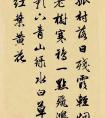 孤村落日殘霞輕烟
老樹寒鴉一點飛鴻
影下青山綠水白草
紅葉黃花